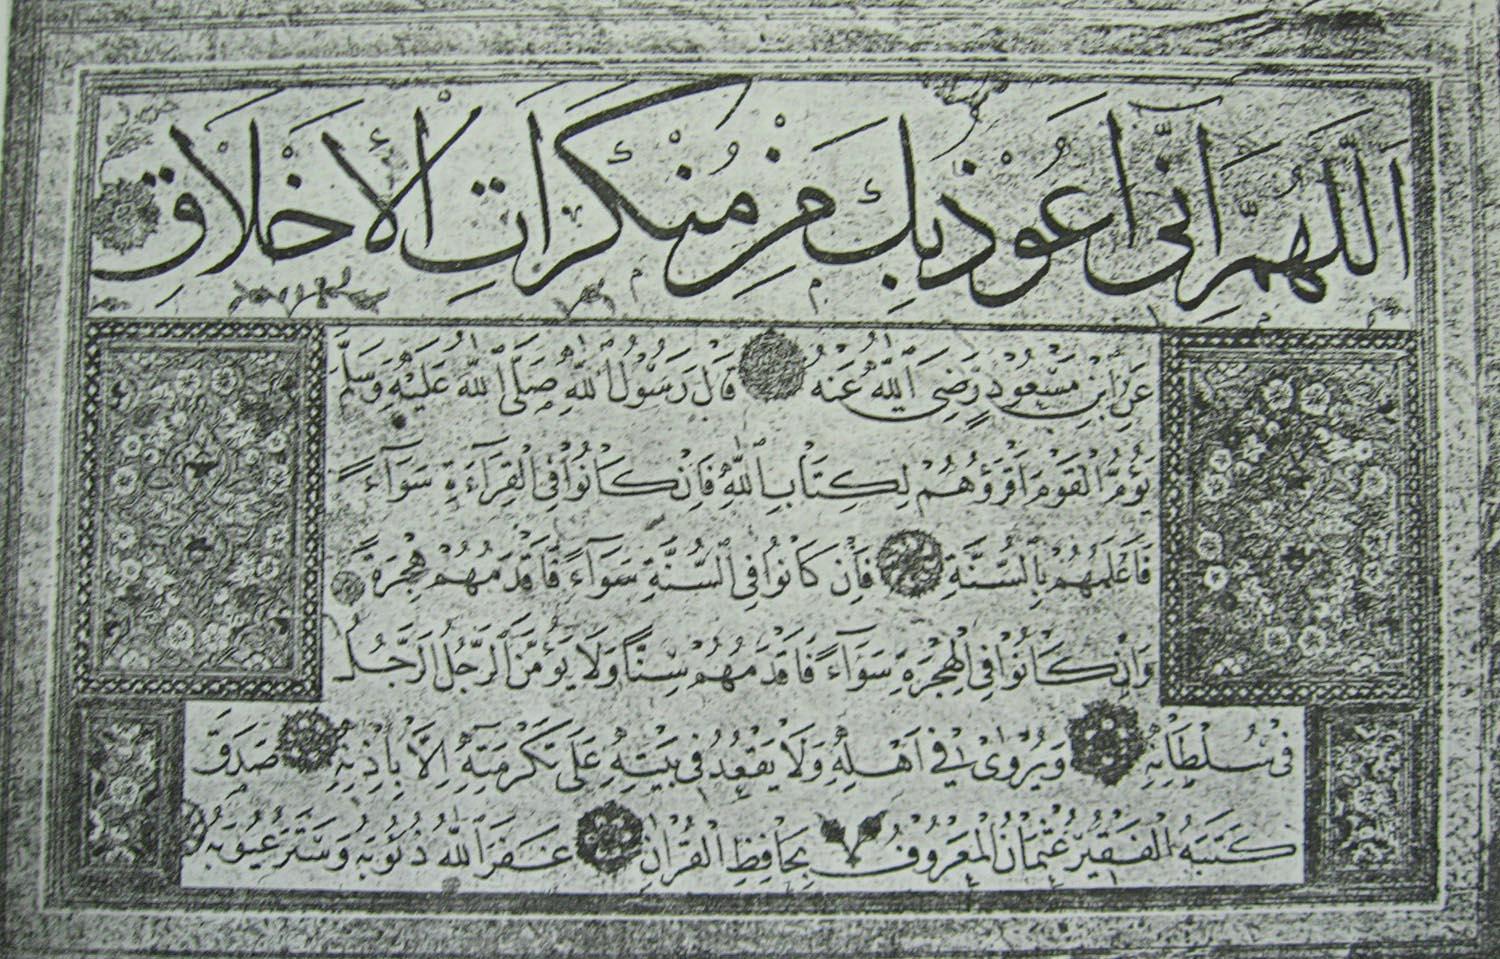 اَللّٰهُمَّ اِنّى اَعُوْذُ بِكَ مِنْ مُنْكَرَاتِ الْاَخْلَاقِ
عَنْ ابْنِ مَسْعُوْدٍ رَضِىَ اللّٰهُ عَنْهُ قَالَ رَسُوْلُ اللّٰهِ صَلَّى اللّٰهُ عَلَيْهِ وَسَلَّمَ
يَؤُمُّ الْقَوْمَ اَقْرَؤُهُمْ لِكِتَابِ اللّٰهِ فَاِنْ كَانُوْا فِى الْقِرَاءَةِ سَوَآءً
فَاَعْلَمُهُمْ بِالسُّنَّةِ فَاِنْ كَانُوْا فِى السُّنَّةِ سَوَآءً فَاَقْدَمُهُمْ هِجْرَةً
وَاِنْ كَانُوْا فِى الْهِجْرَةِ سَوَآءً فَاَقْدَمُهُمْ سِنًّا وَلَا يَؤُمَّنَّ الرَّجُلُ الرَّجُلَ
فِى سُلْطَانِهِ وَيُرْوٰى فِى اَهْلِهِ وَلَا يَقْعُدُ فِى بَيْتِهِ عَلٰى تَكْرِمَتِهِ اِلَّا بِاِذْنِهِ صَدَقَ
كَتَبَهُ الْفَقِيْرُ عُثْمَانُ الْمَعْرُوْفُ بِحَافِظِ الْقُرْاٰنِ غَفَرَ اللّٰهُ ذُنُوْبَهُ وَسَتَرَ عُيُوْبَهُ